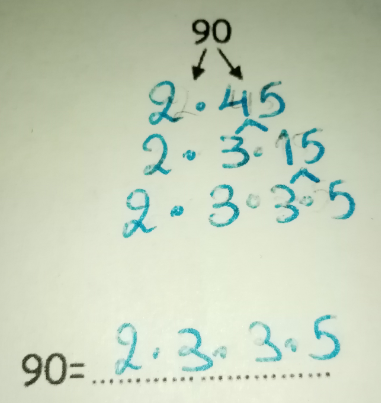 90
2 · 45
2 · 3 · 15
2 · 3 · 3 · 5
90= 2 · 3 · 3 · 5